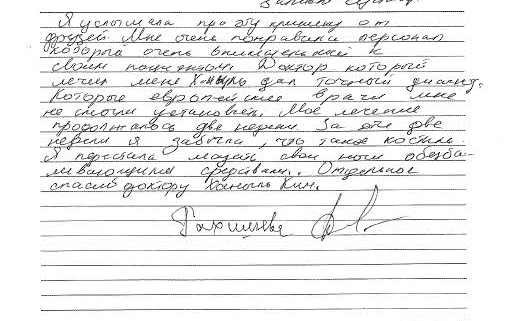 Я услышала про эту клинику от
друзей. Мне очень понравился персонал
который очень внимательный к
своим пациентам. Доктор который
лечил меня Ханыль дал точный диагноз.
Которые европейские врачи мне
не смогли установить. Моё лечение
продолжалось две недели. За эти две
недели я забыла, что такое костыль.
Я перестала мазать свои ноги обезба-
ливающими средствами. Отдельное
спасибо доктору Ханыль Ким.